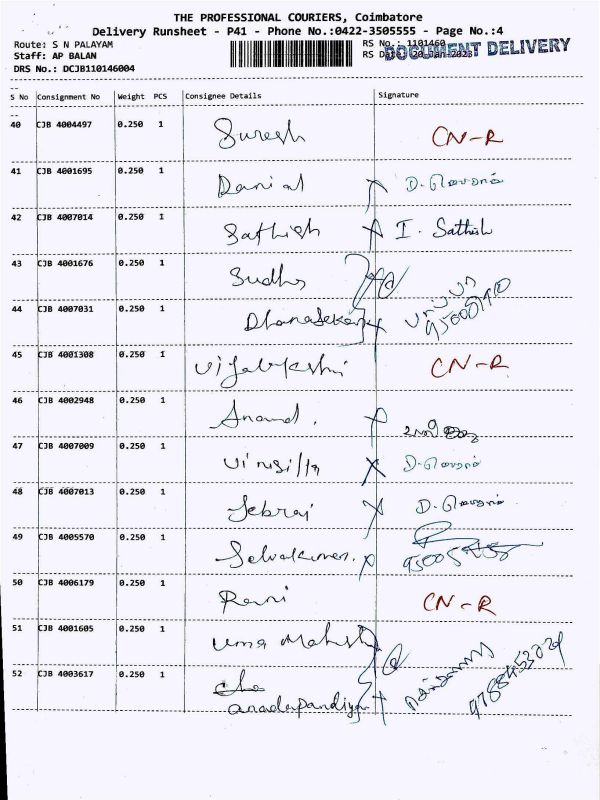 THE PROFESSIONAL COURIERS, Coimbatore
Delivery Runsheet - P41 - Phone No.:0422-3505555 - Page No.:4
Route: S N PALAYAM RS No.: 1101460
DOCUMENT DELIVERY
Staff: AP BALAN RS Date: 20-Jan-2023
DRS No.: DCJB110146004
S No Consignment No Weight PCS Consignee Details Signature
40 CJB 4004497 0.250 1 Suresh CN-R
41 CJB 4001695 0.250 1 Danial
42 CJB 4007014 0.250 1 Sathish I. Sathish
43 CJB 4001676 0.250 1 Sudha
44 CJB 4007031 0.250 1 Dhanasekar
45 CJB 4001308 0.250 1 Vijalakshmi CN-R
46 CJB 4002948 0.250 1 Anand.
47 CJB 4007009 0.250 1
48 CJB 4007013 0.250 1 Jebraj
49 CJB 4005570 0.250 1 Selvakumar.
50 CJB 4006179 0.250 1 Rani CN-R
51 CJB 4001605 0.250 1 Uma Mahesh
52 CJB 4003617 0.250 1